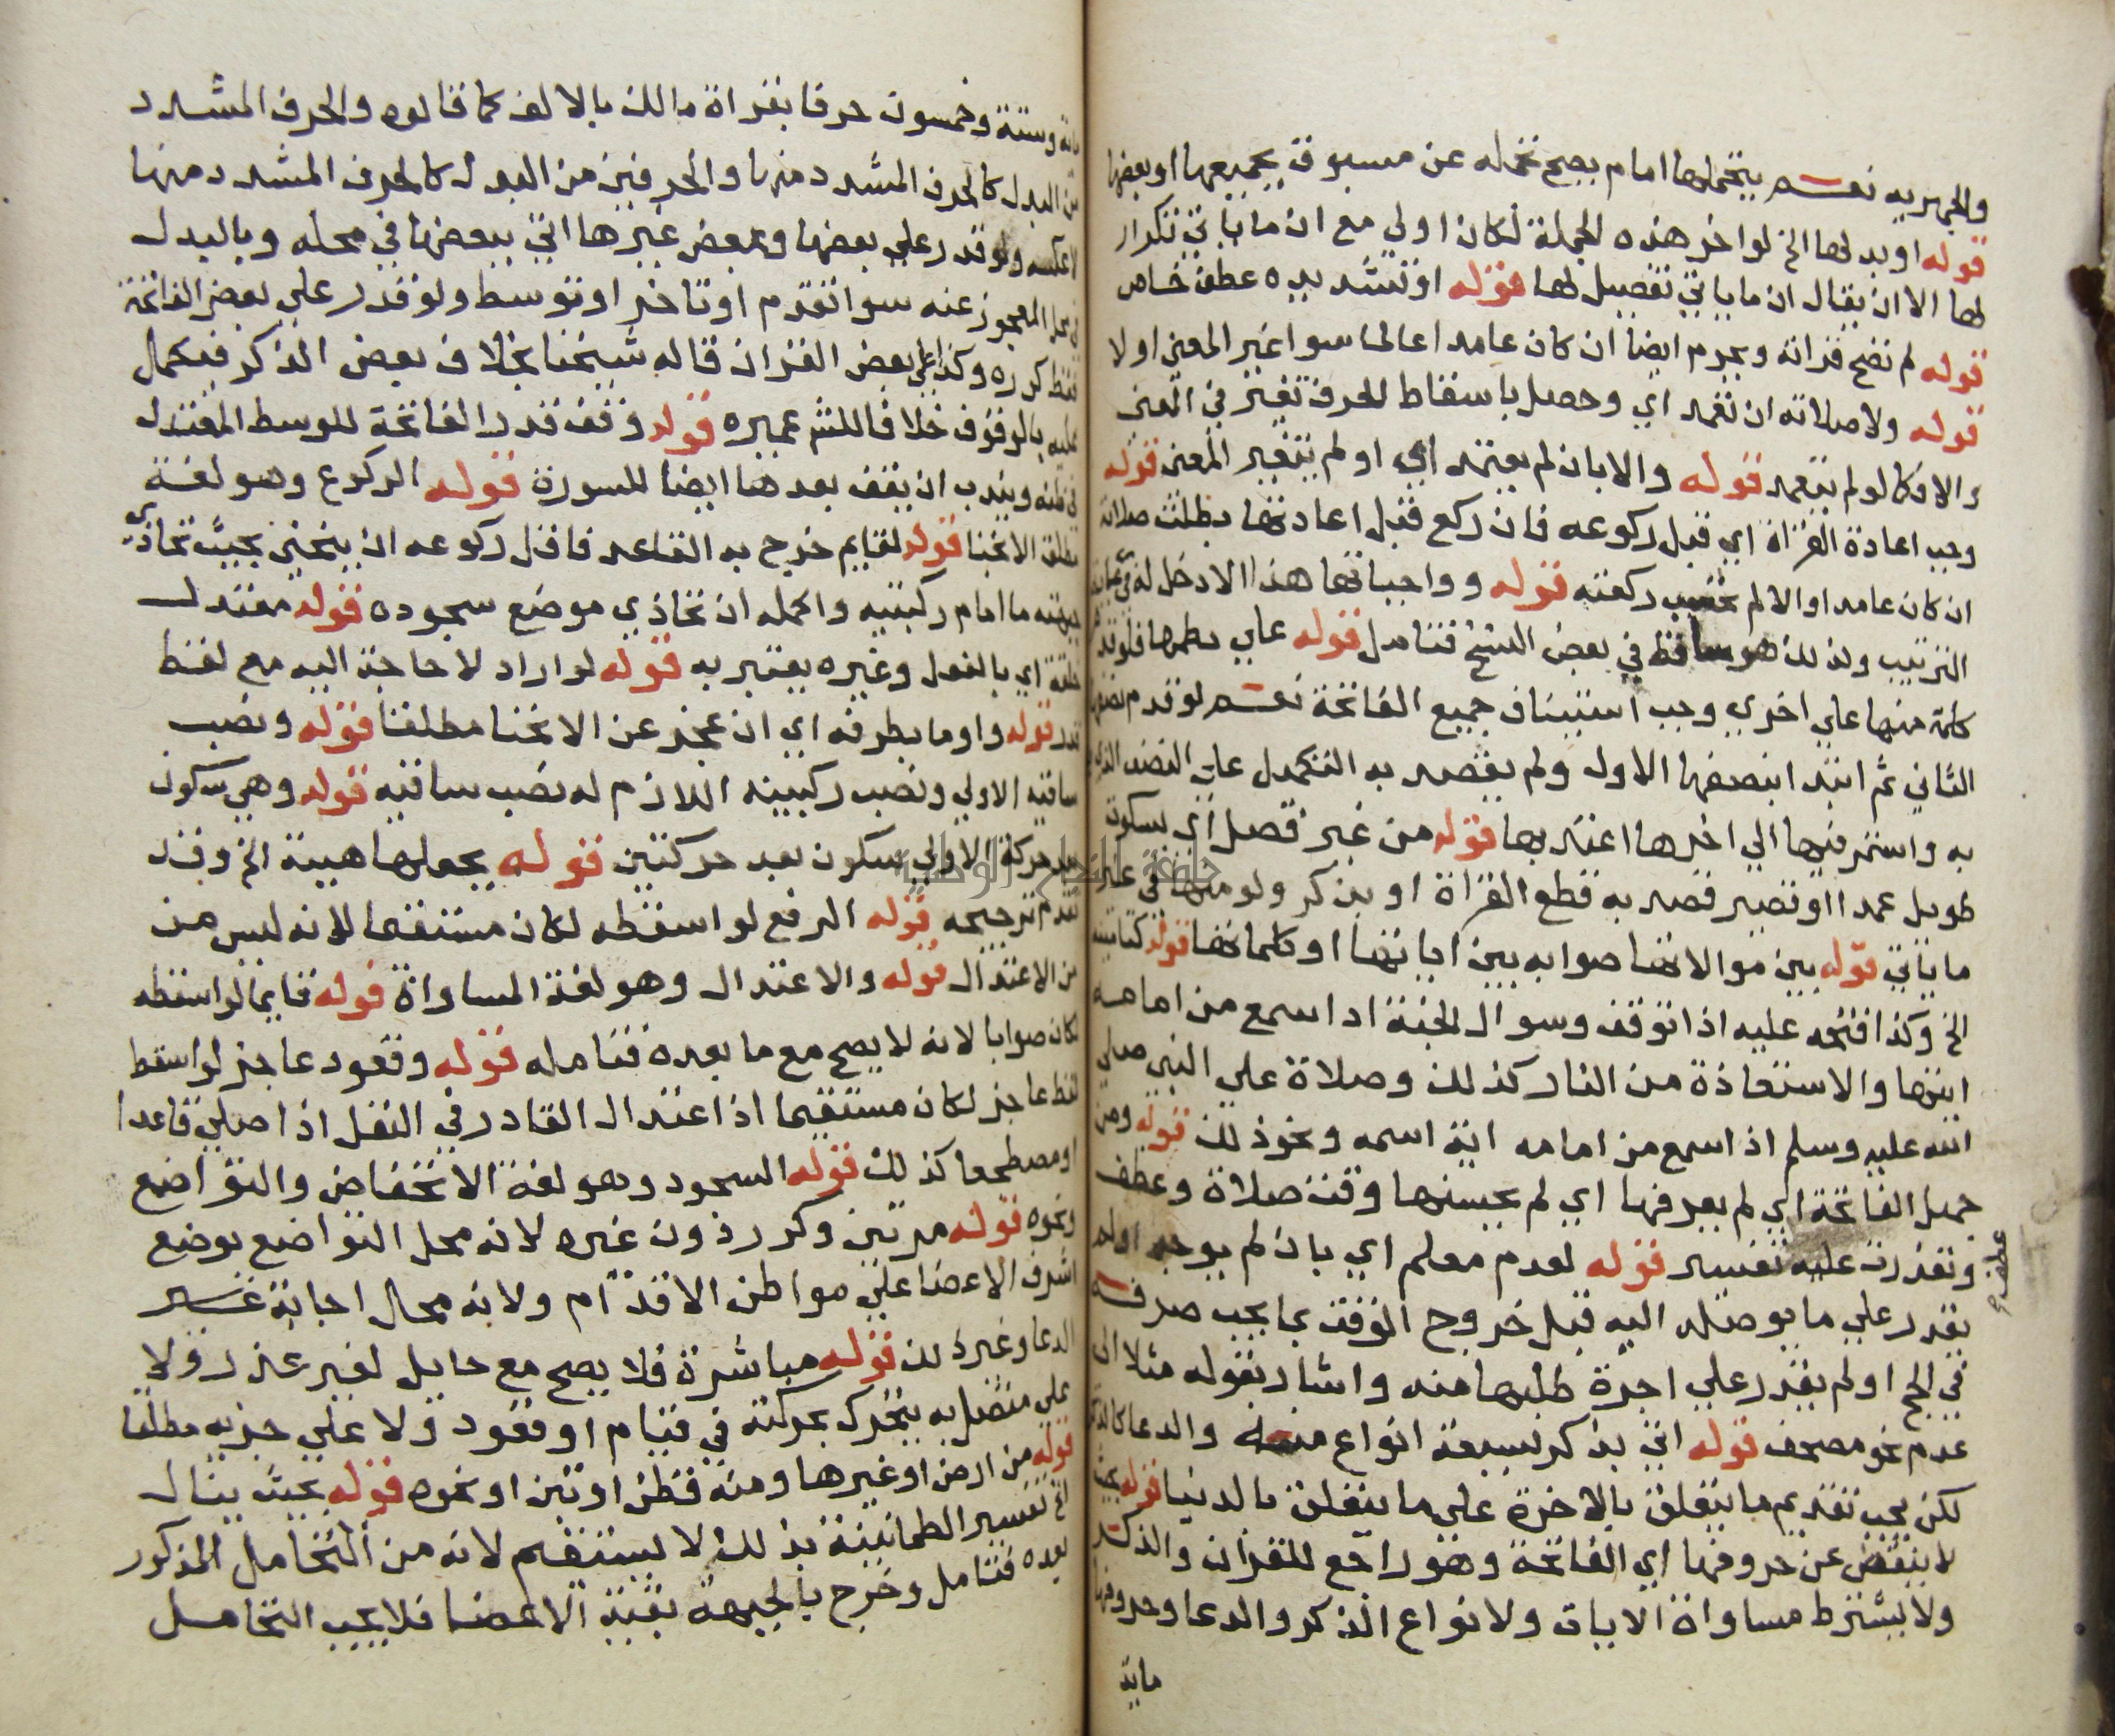 والجهر به نعم يتحملها امام يصح تحمله عن مسبوق بجميعها او بعضها
قوله او بدلها الخ لو اخر هذه الجملة لكان اولي مع ان ما ياتي تكرار
لها الا ان يقال ان ما ياتي تفصيل لها قوله او تشديده عطف خاص
قوله لم تصح قراته ويحرم ايضا ان كان عامدا عالما سوا غير المعني اولا
قوله ولا صلاته ان تعمد اي وحصل باسقاط الحرف تغير في المعني
والا فكما لو لم يتعمد قوله والا بان لم يعتمد اي او لم يتغير المعني قوله
وجب اعادة القراة اي قبل ركوعه فان ركع قبل اعادتها بطلت صلاته
ان كان عامدا والا لم تحسب ركعته قوله وواجباتها هذا لا دخل له في
الترتيب ولذلك هو ساقط في بعض النسخ فتامل قوله علي نظمها فلو قدم
كلمة منها علي اخري وجب استيناف جميع الفاتحة نعم لو قدم نصفها
الثاني ثم ابتدا بنصفها الاول ولم يقصد به التكميل علي النصف الذي
به واستمر فيها الي اخرها اعتد بها قوله من غير فصل اي بسكوت
طويل عمدا او قصير قصد به قطع القراة او بذكر ولو منها في غير
ما ياتي قوله بين موالاتها صوابه بين اياتها او كلماتها قوله كتامينه
الخ وكذا فتحه عليه اذا توقف وسوال الجنة اذا سمع من امامه
ايتها والاستعاذة من النار كذلك وصلاة علي النبي صلي
الله عليه وسلم اذا سمع من امامه اية اسمه ونحو ذلك قوله ومن
جهل الفاتحة اي لم يعرفها اي لم يحسنها وقت صلاة وعطف
وتعذرت عليه تفسير قوله لعدم معلم اي بان لم يوجد او لم
عطف
يقدر علي ما يوصله اليه قبل خروج الوقت بما يجب صرفه
في الحج او لم يقدر علي اجرة طلبها منه واشار بقوله مثلا الي
عدم نحو مصحف قوله اتي بذكر سبعة انواع منه والدعا كالذكر
لكن يجب تقديم ما يتعلق بالاخرة علي ما يتعلق بالدنيا قوله بحيث
لا ينقص عن حروفها اي الفاتحة وهو راجع للقران والذكر
ولا يشترط مساواة الايات ولا نواع الذكر والدعا وحروفها
ماية
ماية وستة وخمسون حرفا بقراة مالك بالالف كما قالوه والحرف المشدد
من البدل كالحرف المشدد منها والحرفين من البدل كالحرف المشدد منها
لا عكسه ولو قدر علي بعضها وبعض غيرها اتي ببعضها في محله وبالبدل
في محل المعجوز عنه سوا تقدم او تاخر او توسط ولو قدر علي بعض الفاتحة
فقط كرره وكذا علي بعض القران قاله شيخنا بخلاف بعض الذكر فيكمل
عليه بالوقوف خلافا للشم عميره قوله وقف قدر الفاتحة للوسط المعتدل
في ظنه ويندب ان يقف بعدها ايضا للسورة قوله الركوع وهو لغة
مطلق الانحنا قوله لقايم خرج به القاعد فاقل ركوعه ان ينحني بحيث تحاذي
جبهته ما امام ركبتيه واكمله ان تحاذي موضع سجوده قوله معتدل
خلقة اي بالفعل وغيره يعتبر به قوله لو اراد لا حاجة اليه مع لفظ
قدر قوله واوما بطرفه اي ان عجز عن الانحنا مطلقا قوله ونصب
ساقيه الاولي ونصب ركبتيه اللازم له نصب ساقيه قوله وهي سكون
بعد حركة الاولي سكون بعد حركتين قوله يجعلها هيية الخ وقد
تقدم ترجيحه قوله الرفع لو اسقطه لكان مستقيما لانه ليس من
من الاعتدال قوله والاعتدال وهو لغة المساواة قوله قايما لو اسقطه
لكان صوابا لانه لا يصح مع ما بعده فتامله قوله وقعود عاجز لو اسقط
لفظ عاجز لكان مستقيما اذ اعتدال القادر في النفل اذا صلي قاعدا
او مضطجعا كذلك قوله السجود وهو لغة الانخفاض والتواضع
ونحوه قوله مرتين وكرر دون غيره لانه محل التواضع بوضع
اشرف الاعضا علي مواطن الاقدام ولانه محال اجابة
الدعا وغير ذلك قوله مباشرة فلا يصح مع حايل لغير عذر ولا
علي متصل به يتحرك بحركته في قيام او قعود ولا علي جزيه مطلقا
قوله من ارض او غيرها ومنه قطن او تبن او نحوه قوله بحيث ينال
الخ تفسير الطمانينة بذلك لا يستقيم لانه من التحامل المذكور
بعده فتامل وخرج بالجبهة بقية الاعضا فلا يجب التحامل